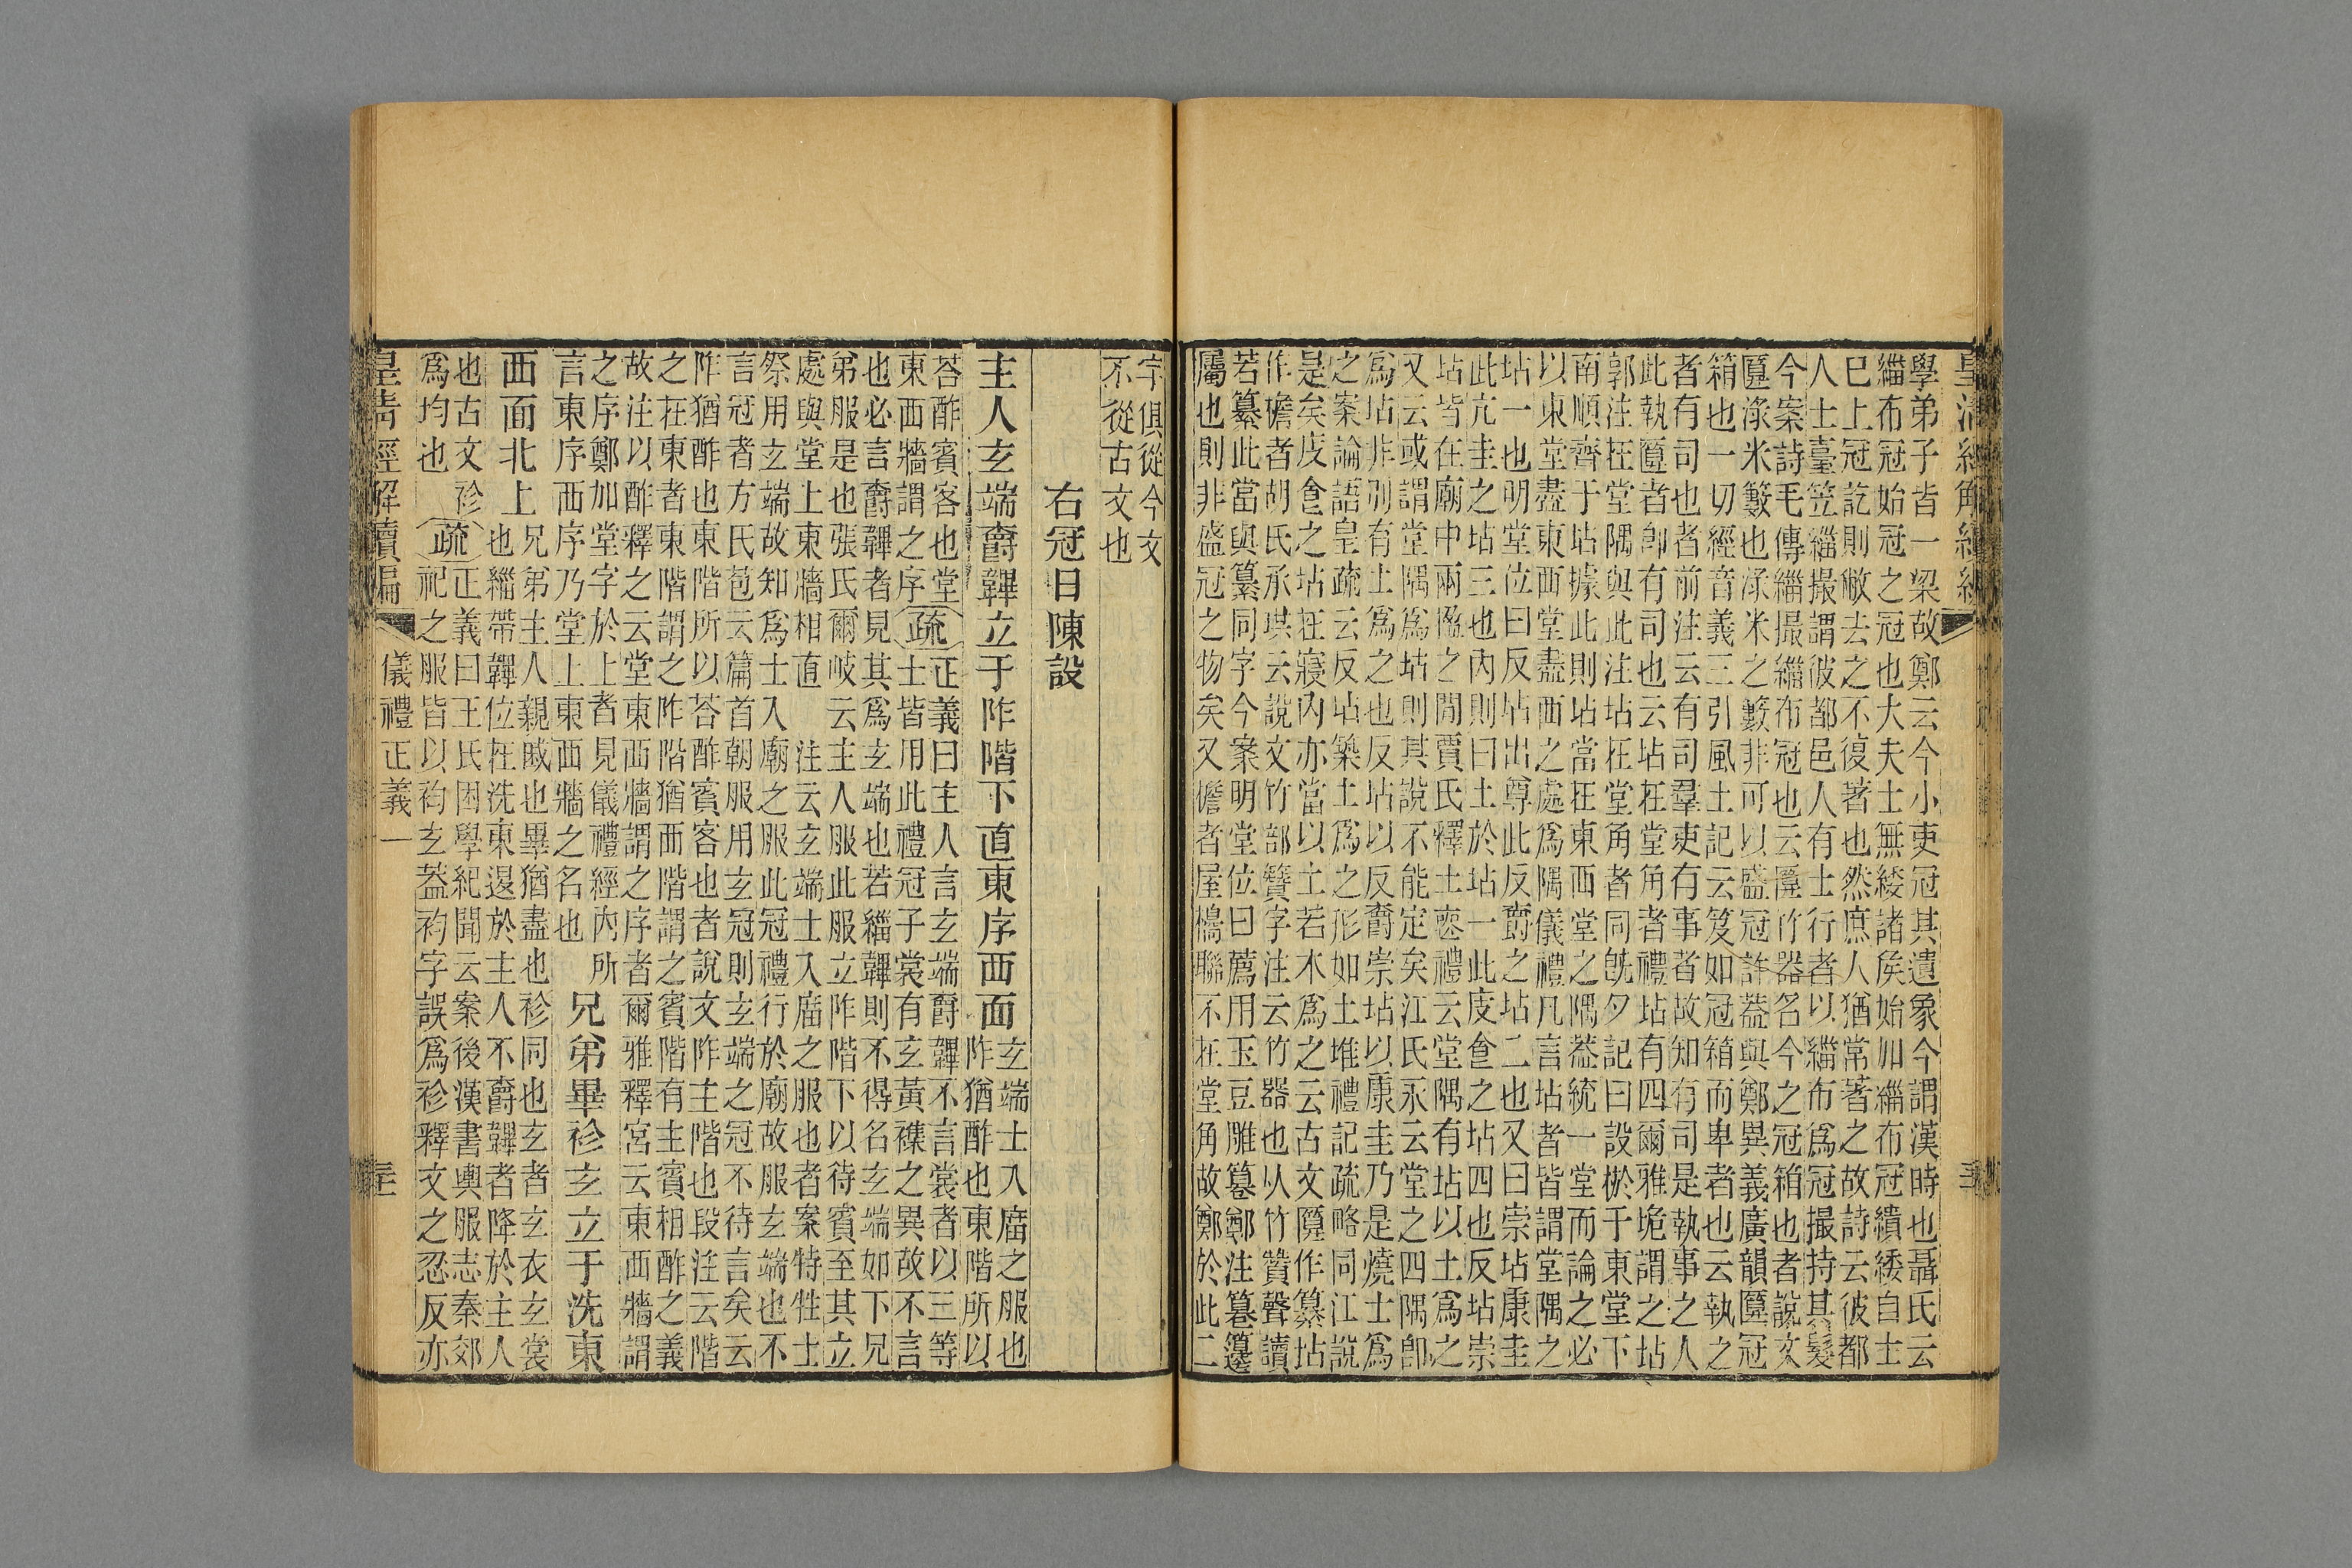 學弟子皆一梁故鄭云今小吏冠其遺象今謂漢時也聶氏云
緇布冠始冠之冠也大夫士無緌諸矦始加緇布冠繢緌自士
巳上冠訖則敝去之不復著也然庶人猶常著之故詩云彼都
人士臺笠緇撮謂彼都邑人有士行者以緇布爲冠撮持其髮
今案詩毛傳緇撮緇布冠也云匴竹器名今之冠箱也者說文
匴淥米籔也淥米之籔非可以盛冠許葢與鄭異義廣韻匴冠
箱也一切經音義三引風土記云笈如冠箱而卑者也云執之
者有司也者前注云有司羣吏有事者故知有司是執事之人
此執匴者卽有司也云坫在堂角者禮坫有四爾雅垝謂之坫
郭注在堂隅與此注坫在堂角者同旣夕記曰設棜于東堂下
南順齊于坫據此則坫當在東西堂之隅葢統一堂而論之必
以東堂盡東西堂盡西之處爲隅儀禮凡言坫者皆謂堂隅之
坫一也明堂位曰反坫出尊此反爵之坫二也又曰崇坫康圭
此亢圭之坫三也內則曰土於坫一此庋食之坫四也反坫崇
坫皆在廟中兩楹之閒賈氏釋士喪禮云堂隅有坫以土爲之
又云或謂堂隅爲坫則其說不能定矣江氏永云堂之四隅卽
爲坫非別有土爲之也反坫以反爵崇坫以康圭乃是燒士爲
之案論語皇疏云反坫築土爲之形如土堆禮記疏略同江說
是矣庋食之坫在寢內亦當以土若木爲之云古文匴作纂坫
作檐者胡氏承珙云說文竹部籫字注云竹器也从竹贊聲讀
若纂此當與纂同字今案明堂位曰薦用玉豆雕篹鄭注篹籩
屬也則非盛冠之物矣又檐者屋梠聯不在堂角故鄭於此二
字俱從今文
不從古文也
右冠日陳設
主人玄端爵韠立于阼階下直東序西面
玄端士入庿之服也
阼猶酢也東階所以
荅酢賓客也堂
東西牆謂之序
疏
正義曰主人言玄端爵韠不言裳者以三等
士皆用此禮冠子裳有玄黃襍之異故不言
也必言爵韠者見其爲玄端也若緇韠則不得名玄端如下兄
弟服是也張氏爾岐云主人服此服立阼階下以待賓至其立
處與堂上東牆相直 注云玄端士入庿之服也者案特牲士
祭用玄端故知爲士入廟之服此冠禮行於廟故服玄端也不
言冠者方氏苞云篇首朝服用玄冠則玄端之冠不待言矣云
阼猶酢也東階所以荅酢賓客也者說文阼主階也段注云階
之在東者東階謂之阼階猶西階謂之賓階有主賓相酢之義
故注以酢釋之云堂東西牆謂之序者爾雅釋宮云東西牆謂
之序鄭加堂字於上者見儀禮經內所
言東序西序乃堂上東西牆之名也
兄弟畢袗玄立于洗東
西面北上
兄弟主人親戚也畢猶盡也袗同也玄者玄衣玄裳
也緇帶韠位在洗東退於主人不爵韠者降於主人
也古文袗
爲均也
疏
正義曰王氏困學紀聞云案後漢書輿服志秦郊
祀之服皆以袀玄葢袀字誤爲袗釋文之忍反亦
皇清經解續編
儀禮正義一